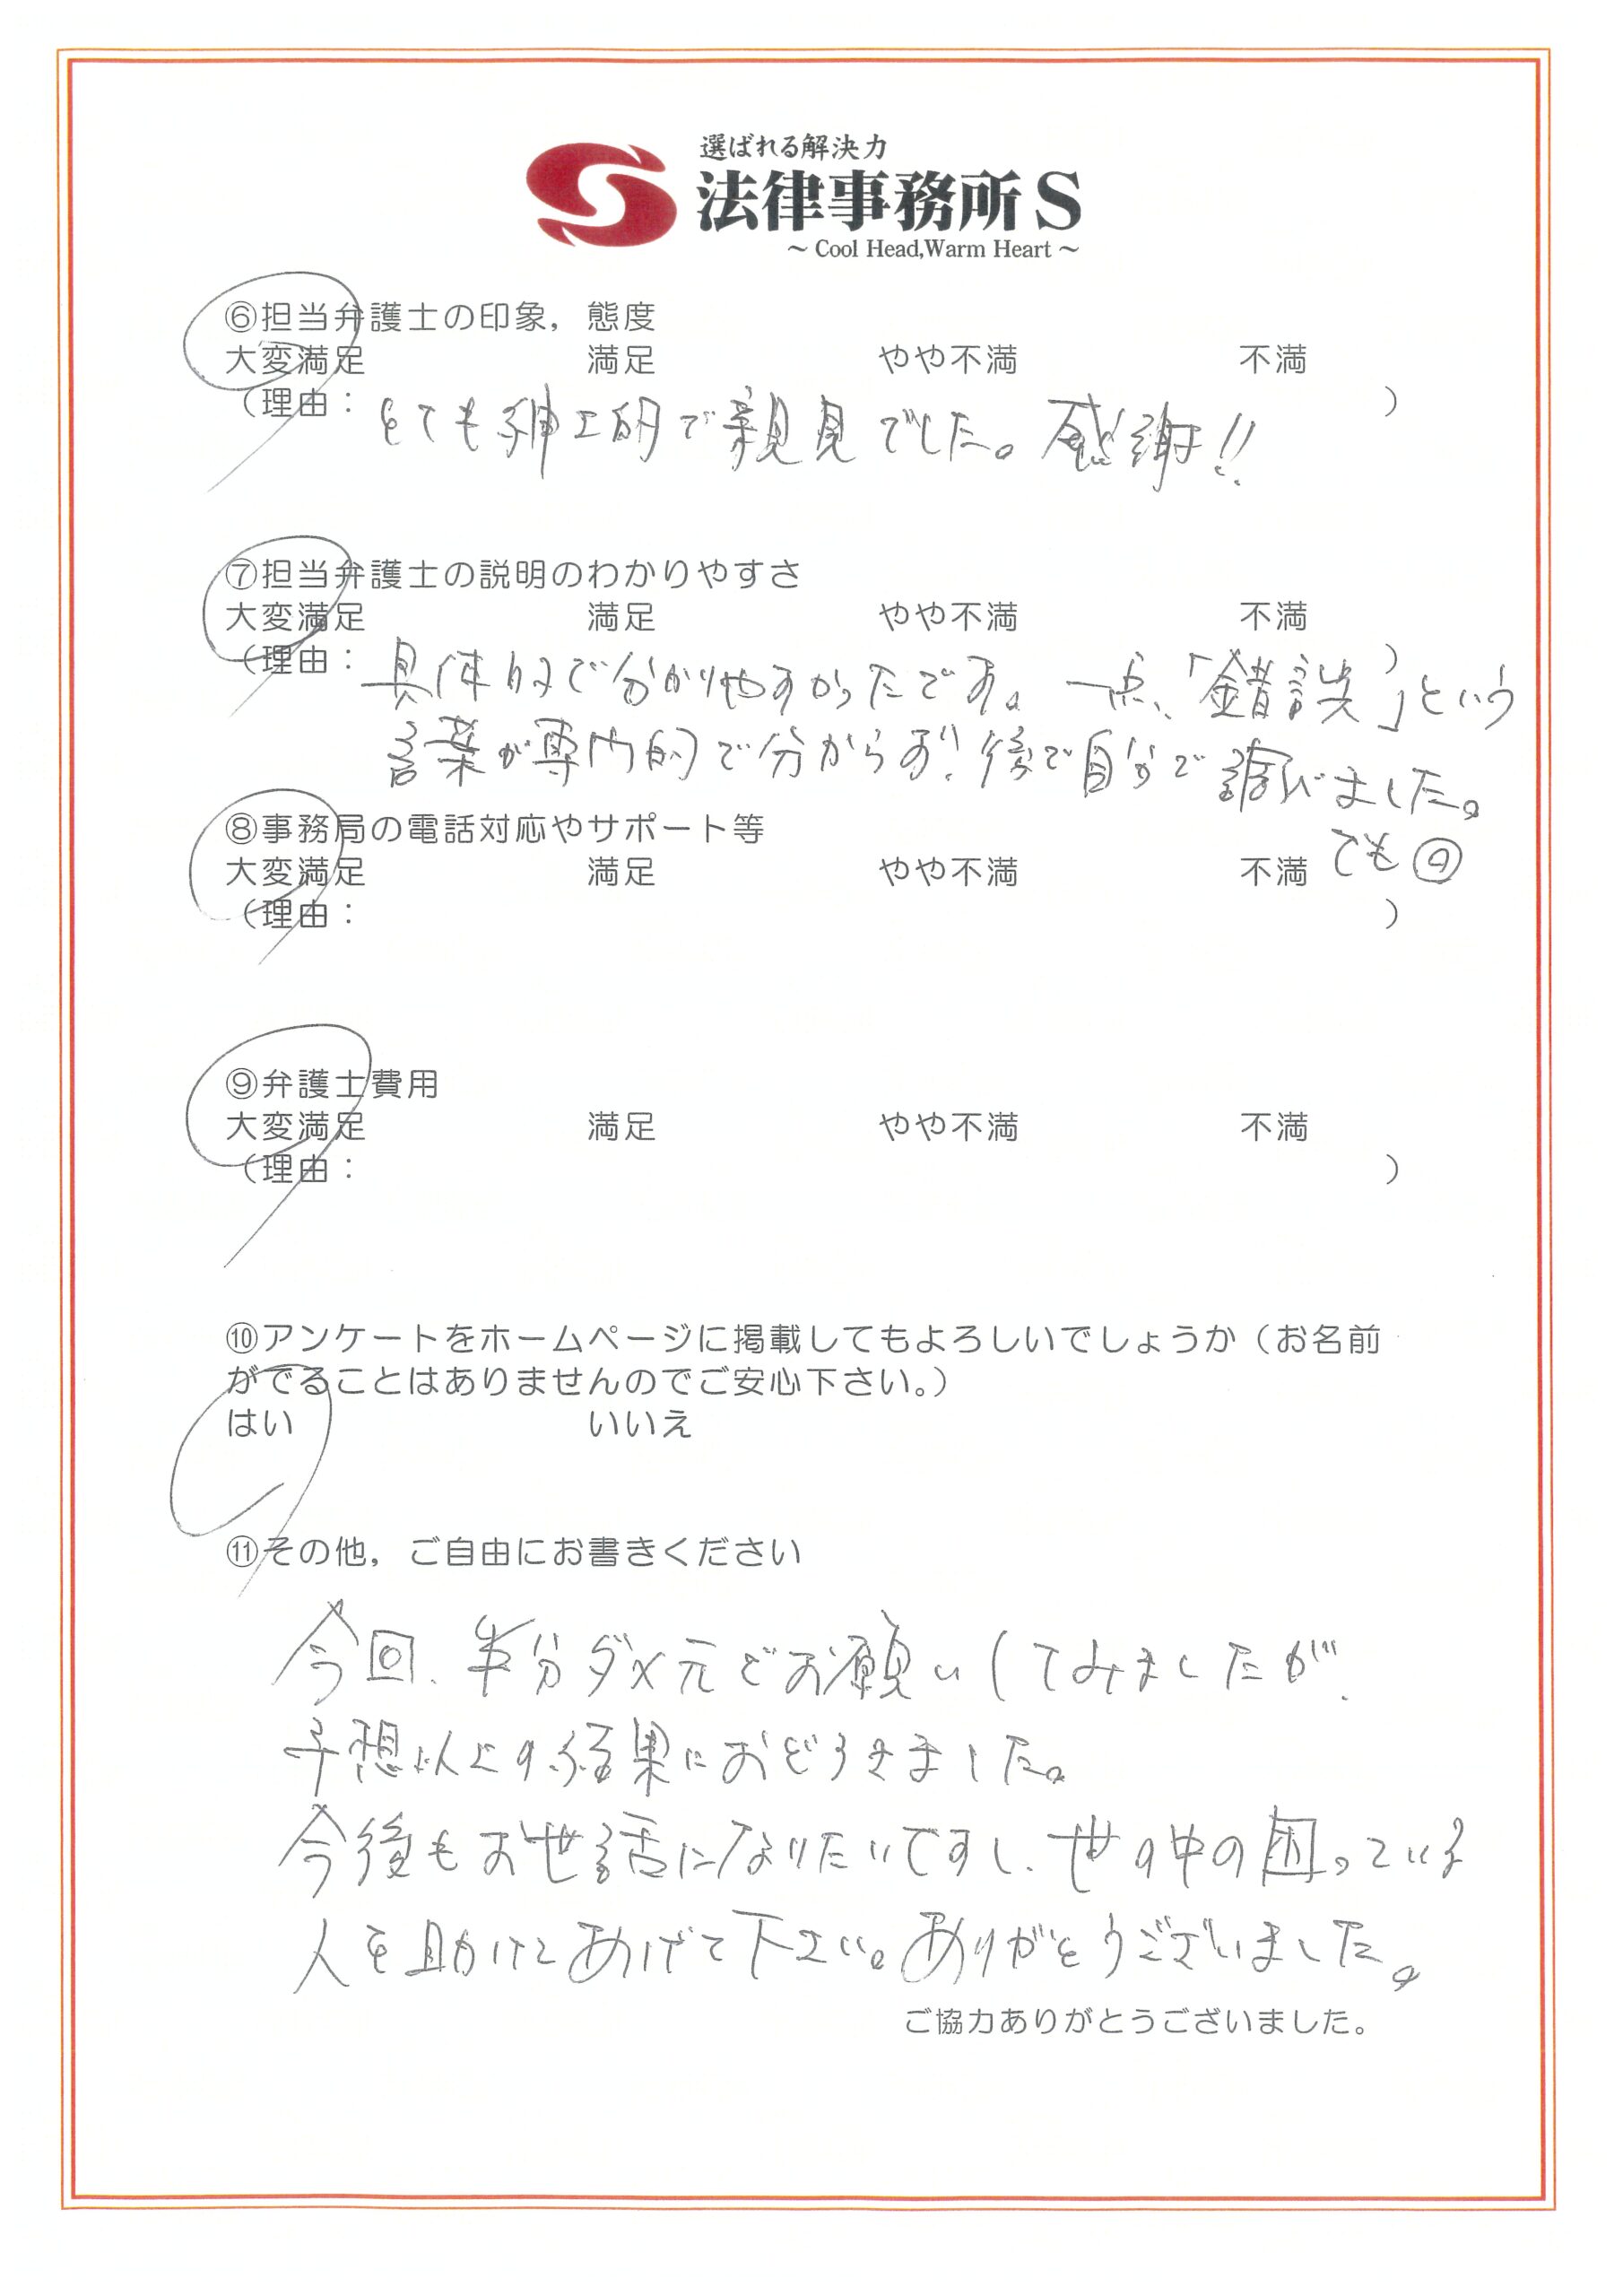 選ばれる解決力
法律事務所S
～Cool Head,Warm Heart～
⑥担当弁護士の印象，態度
大変満足 満足 やや不満 不満
（理由：とても紳士的で親身でした。感謝!! ）
⑦担当弁護士の説明のわかりやすさ
大変満足 満足 やや不満 不満
（理由：具体的で分かりやすかったです。一点、「錯誤」という ）
言葉が専門的で分からず!後で自分で調びました。
でも
⑧事務局の電話対応やサポート等
大変満足 満足 やや不満 不満
（理由： ）
⑨弁護士費用
大変満足 満足 やや不満 不満
（理由： ）
⑩アンケートをホームページに掲載してもよろしいでしょうか（お名前
がでることはありませんのでご安心下さい。）
はい いいえ
⑪その他，ご自由にお書きください
今回、半分ダメ元でお願いしてみましたが、
予想以上の結果におどろきました。
今後もお世話になりたいですし、世の中の困っている
人を助けてあげて下さい。ありがとうございました。
ご協力ありがとうございました。